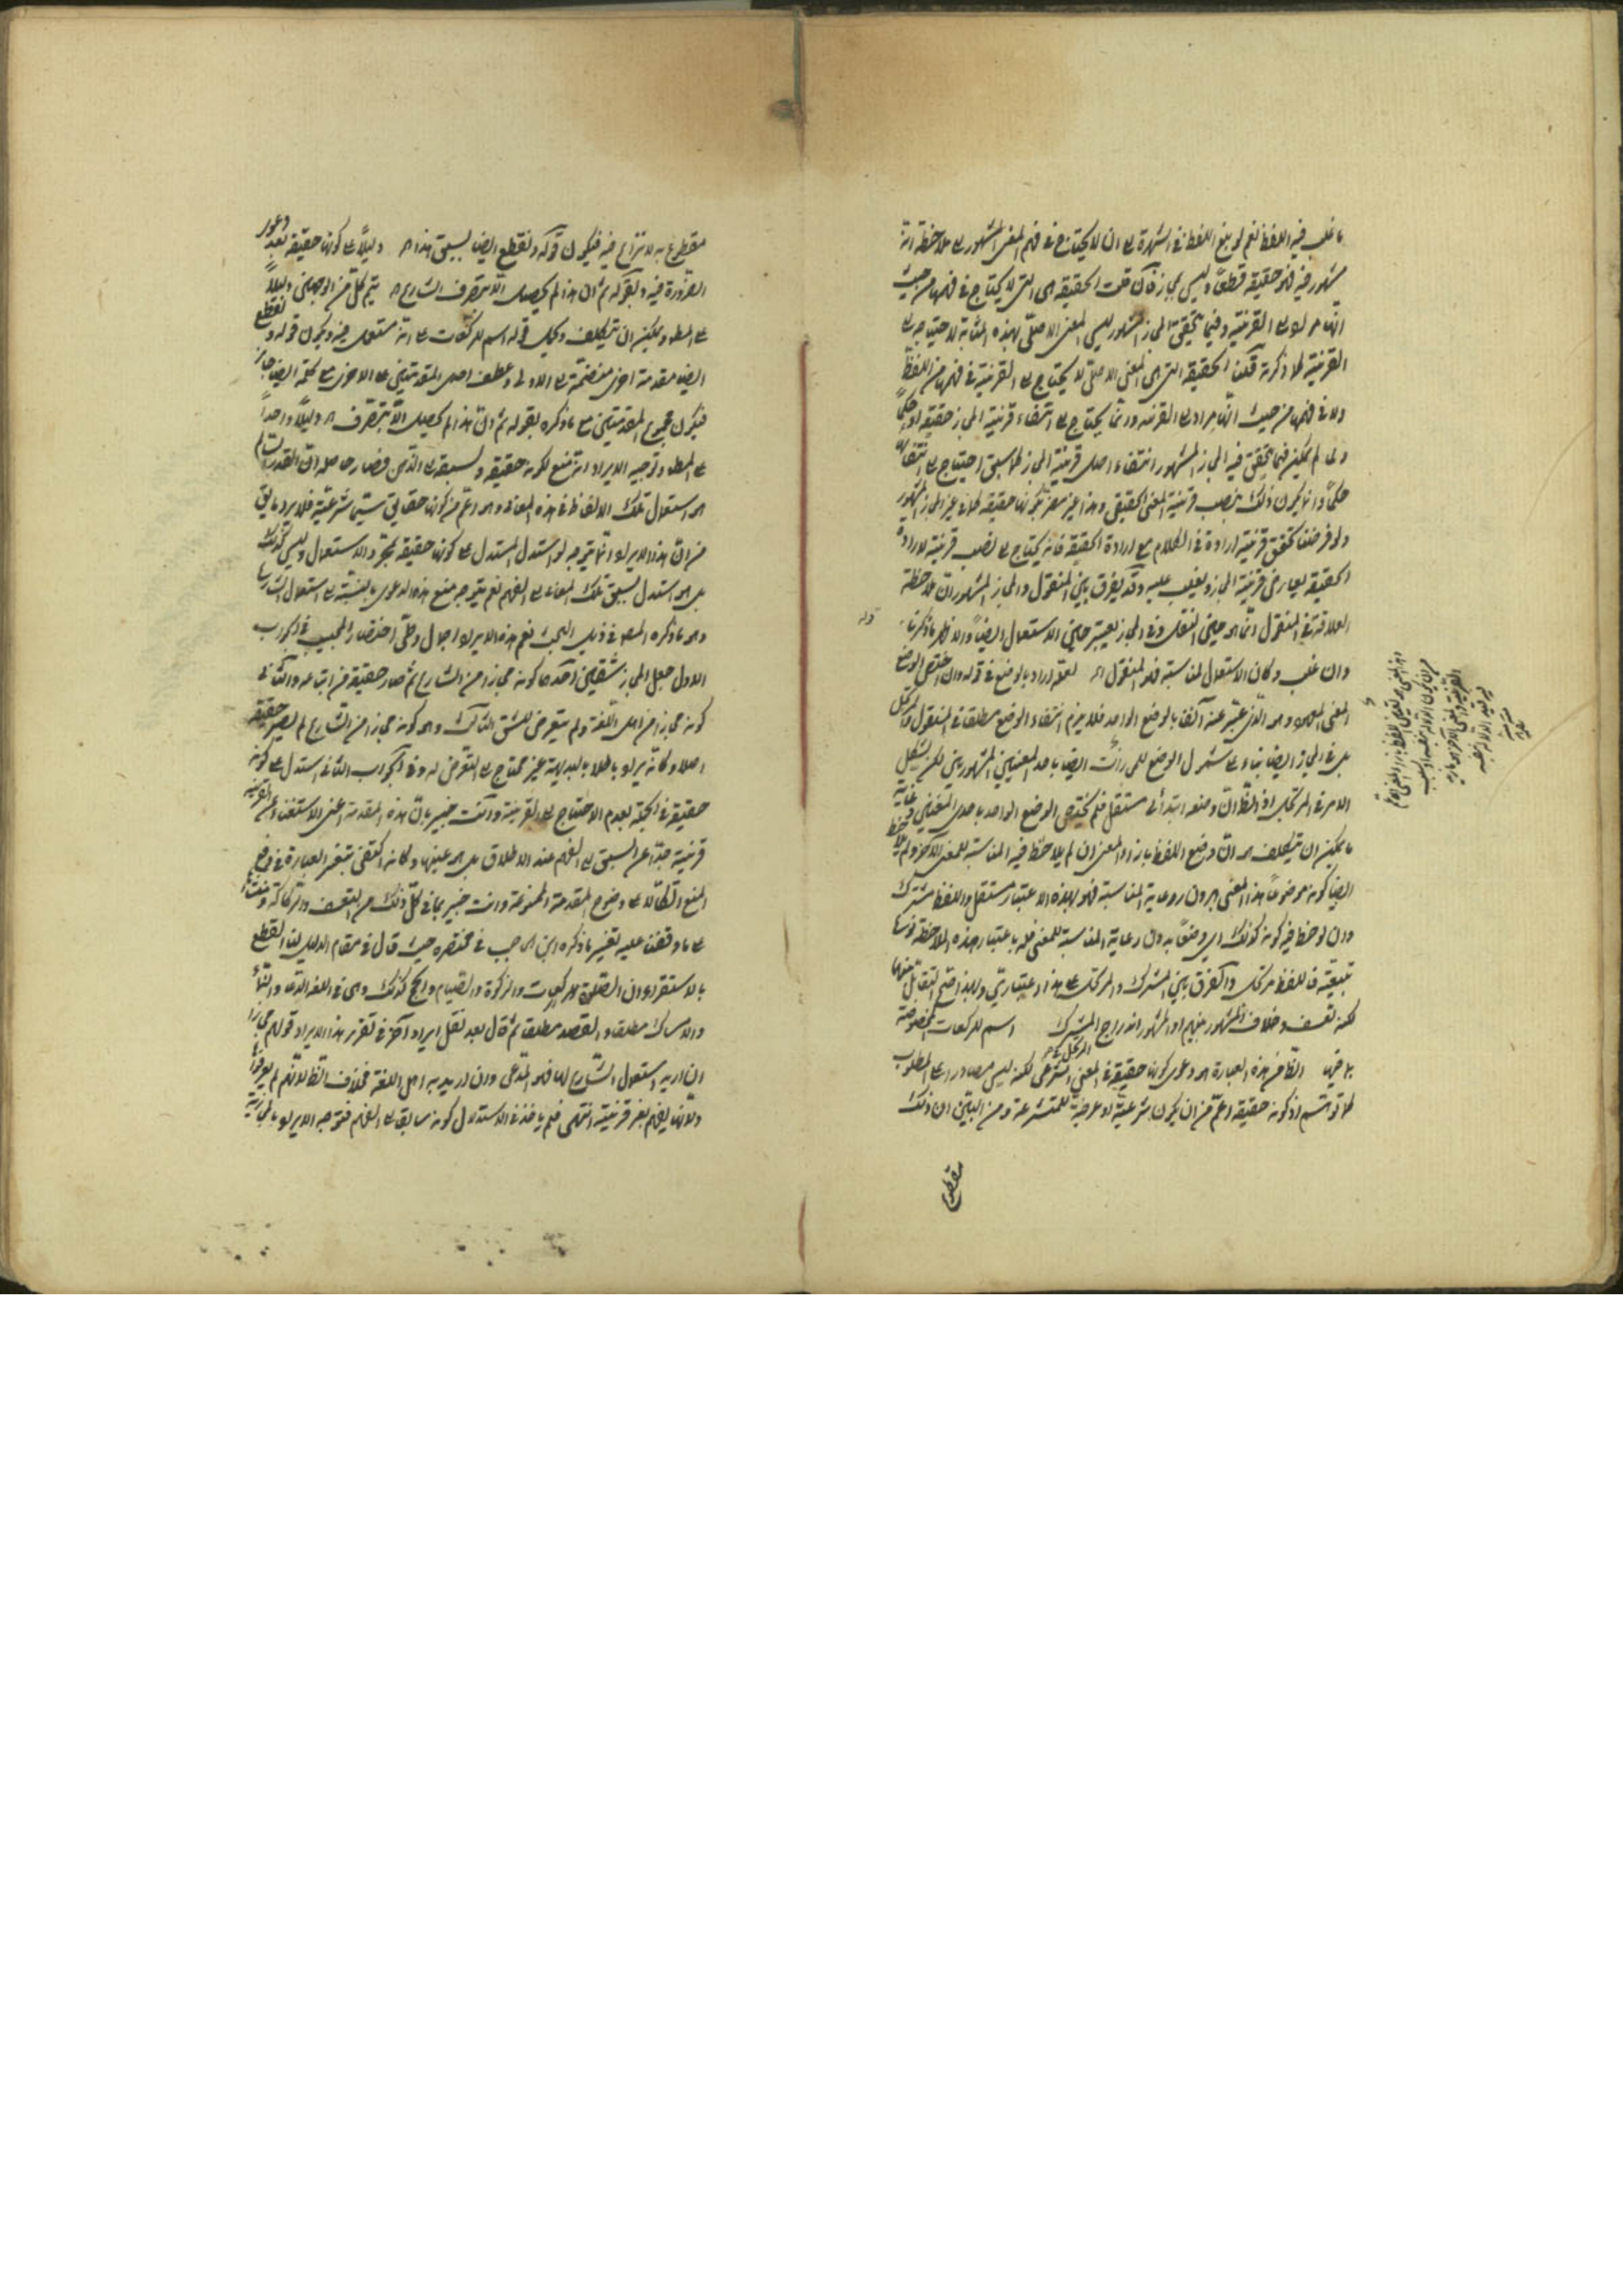 ما غلب فيه اللفظ نعم لو بلغ اللفظ في الشهرة الى ان لا يحتاج في فهم المعنى المشهور الى ملاحظة انه
مشهور فيه فهو حقيقة قطعاً وليس بمجاز فان قلت الحقيقة هي التي لا يحتاج في فهمها من حيث
انها مراد الى القرينة وفيما تحقق المجاز المشهور ليس المعنى الاصلي بهذه المثابة لاحتياجه الى
القرينة لما ذكرته قلت الحقيقة التي هي المعنى الاصلي لا يحتاج الى القرينة في فهمها من اللفظ
ولا في فهمها من حيث انها مراد الى القرينة وانما يحتاج الى انتفاء قرينة المجاز حقيقة او حكماً
ولما لم يكن فيما تحقق فيه المجاز المشهور انتفاء اصل قرينة المجاز لما سبق احتياج الى انتفائها
حكماً وانما يكون ذلك بنصب قرينة المعنى الحقيقي وهذا غير مضر بكونها حقيقة كما في غير المجاز المشهور
ولو فرضنا تحقق قرينة ارادة في الكلام مع ارادة الحقيقة فانه يحتاج الى نصب قرينة لارادة
الحقيقة يعارض قرينة المجاز ويغلب عليه وقد يفرق بين المنقول والمجاز المشهور ان ملاحظة
العلاقة في المنقول انما هو حين النقل وفي المجاز يعتبر حين الاستعمال ايضاً والاظهر ما ذكرناه قوله
وان غلب وكان الاستعمال لمناسبة فهو المنقول اه لعله اراد بالوضع في قوله وان اختص الوضع
المعنى وهو الذي عبر عنه آنفا بالوضع الواحد فلا يلزم انتفاء الوضع مطلقا في المنقول والمرتجل
بل في المجاز ايضا بناء على شمول الوضع ايضا باحد المعنيين المشهورين لكن يشكل
الامر في المرتجل اذ الظ ان وضعه ابتدائي مستقل فلم يختص الوضع الواحد باحد المعنيين وغاية
ما يمكن ان يتكلف هو ان وضع اللفظ بازاء المعنى ان لم يلاحظ فيه المناسبة للمعنى الآخر ولم يلاحظ
ايضا كونه موضوعاً لهذا المعنى بدون رعاية المناسبة فهو بهذه الاعتبار مستقل واللفظ مشترك
وان لوحظ فيه كونه كذلك اي وضعاً بدون رعاية المناسبة للمعنى فله باعتبار هذه الملاحظة نوع
تبعية فاللفظ مرتجل والفرق بين المشترك والمرتجل على هذا اعتباري ولهذا صح التقابل بينهما
لكنه تعسف وخلاف المشهور بينهم اذ المشهور اندراج المرتجل تحت المشترك اسم للركعات المخصوصة
بما فيها الظ من هذه العبارة هو دعوى كونها حقيقة في المعنى الشرعي لكنه ليس مصادرة على المطلوب
كما توهم اذ كونه حقيقة اعم من ان يكون شرعية او عرفية للمتشرعة ومن البين ان ذلك
مقطوع
مقطوع به لا نزاع فيه فيكون قوله ونقطع ايضا بسبق هذا اه دليلاً على كونها حقيقة بعد دعوى
الضرورة فيه وبقوله ثم ان هذا لم يحصل الا بتصرف الشارع اه يتم كل من الوجهين دليلاً
على المط ويمكن ان يتكلف ويحمل قوله اسم للركعات على انه مستعمل فيه ويكون قوله ونقطع
ايضا مقدمة اخرى منضمة الى الاولى وعطف احدى المقدمتين على الاخرى مع كلمة ايضا جائز
فيكون مجموع المقدمتين مع ما ذكره بقوله ثم ان هذا لم يحصل الا بتصرف اه دليلاً واحداً
على المط وتوجيه الايراد انه يمنع لكونه حقيقة ولسبقه الى الذهن فصار حاصله ان القدر المسلم
هو استعمال تلك الالفاظ في هذه المعاني وهو اعم من كونها حقايق سيما شرعية فلا يرد ما يق
من ان هذا الايراد انما يتوجه لو استدل المستدل على كونها حقيقة بمجرد الاستعمال وليس كذلك
بل هو استدل بسبق تلك المعاني الى الفهم نعم يتوجه منع هذه الدعوى بالنسبة الى استعمال الشارع
وهو ما ذكره المص في ذيل البحث نعم هذه الايراد اجمال وظني اختصار المجيب في الجواب
الاول جعل المجاز شقين احدهما كونه مجازا من الشارع ثم صار حقيقة من اتباعه والثاني
كونه مجازا من اهل اللغة ولم يتعرض للشق الثالث وهو كونه مجازا من الشارع لم يصر حقيقة
اصلا وكانه يراد باطلا بالبديهة غير محتاج الى التعرض له وفي الجواب الثاني استدل على كونه
حقيقة في الجملة بعدم الاحتياج الى القرينة وانت خبير بان هذه المقدمة اعني الاستغناء عن القرينة
قرينة جدا عن السبق الى الفهم عند الاطلاق بل هو عينها وكانه اكتفى بتغير العبارة في دفع
المنع اتكالا على وضوح المقدمة الممنوعة وانت خبير بما في كل ذلك من التعسف والركاكة ومنشأه
على ما وقفت عليه تغيير ما ذكره ابن الحاجب في مختصره حيث قال في مقام الدليل لنا القطع
بالاستقراء ان الصلوة للركعات والزكوة والصيام والحج كذلك وهي في اللغة الدعاء والنماء
والامساك مطلقا والقصد مطلقا ثم قال بعد نقل ايراد آخر في تقرير هذا الايراد قولهم مجازا
ان اريد استعمال الشارع لها فهو المدعى وان اريد به اهل اللغة فخلاف الظ لانهم لم يعرفوها
ولانها يفهم بغير قرينة انتهى فلم ياخذ في الاستدلال كونه سابقا الى الفهم فتوجه الايراد بالمجازية